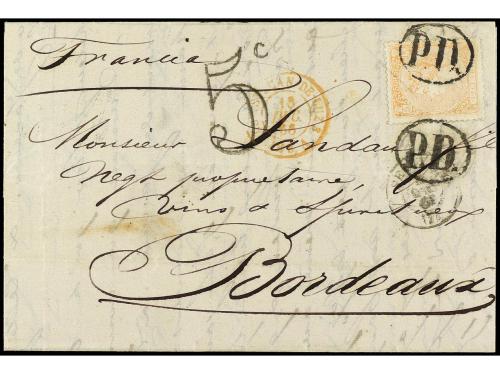 Francia
5 c
P.D.
P.D.
Monsieur Landau
Negt propriétaire,
Vins & Spiritueux
Bordeaux